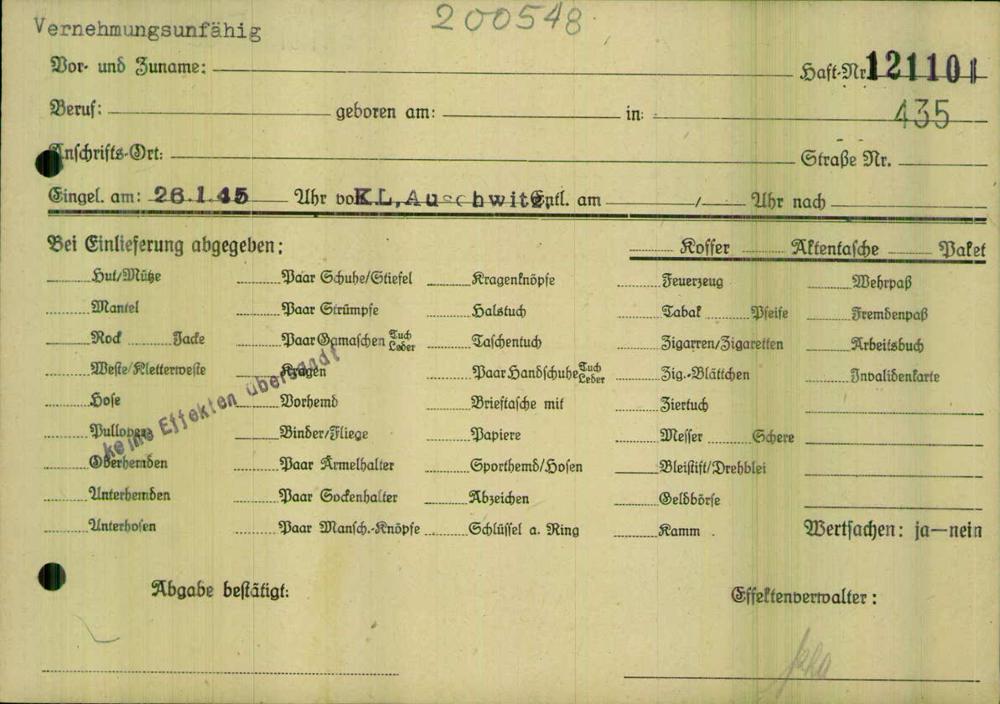 200548
Vernehmungsunfähig
Vor- und Zuname: Haft-Nr. 121101
435
Beruf: geboren am: in:
Anschrifts-Ort: Straße Nr.
Eingel. am: 26.1.45 Uhr von KL, Auschwitz, Entl. am / Uhr nach
Bei Einlieferung abgegeben: Koffer Aktentasche Paket
Hut/Mütze Paar Schuhe/Stiefel Kragenknöpfe Feuerzeug Wehrpaß
Mantel Paar Strümpfe Halstuch Tabak Pfeife Fremdenpaß
Rock Jacke Paar Gamaschen Tuch Leder Taschentuch Zigarren/Zigaretten Arbeitsbuch
Weste/Kletterweste Kragen Paar Handschuhe Tuch Leder Zig.-Blättchen Invalidenkarte
Hose Vorhemd Brieftasche mit Ziertuch
Pullover Binder/Fliege Papiere Messer Schere
Oberhemden Paar Ärmelhalter Sporthemd/Hosen Bleistift/Drehblei
Unterhemden Paar Sockenhalter Abzeichen Geldbörse
Unterhosen Paar Mansch.-Knöpfe Schlüssel a. Ring Kamm Wertsachen: ja—nein
keine Effekten übersandt
Abgabe bestätigt: Effektenverwalter: